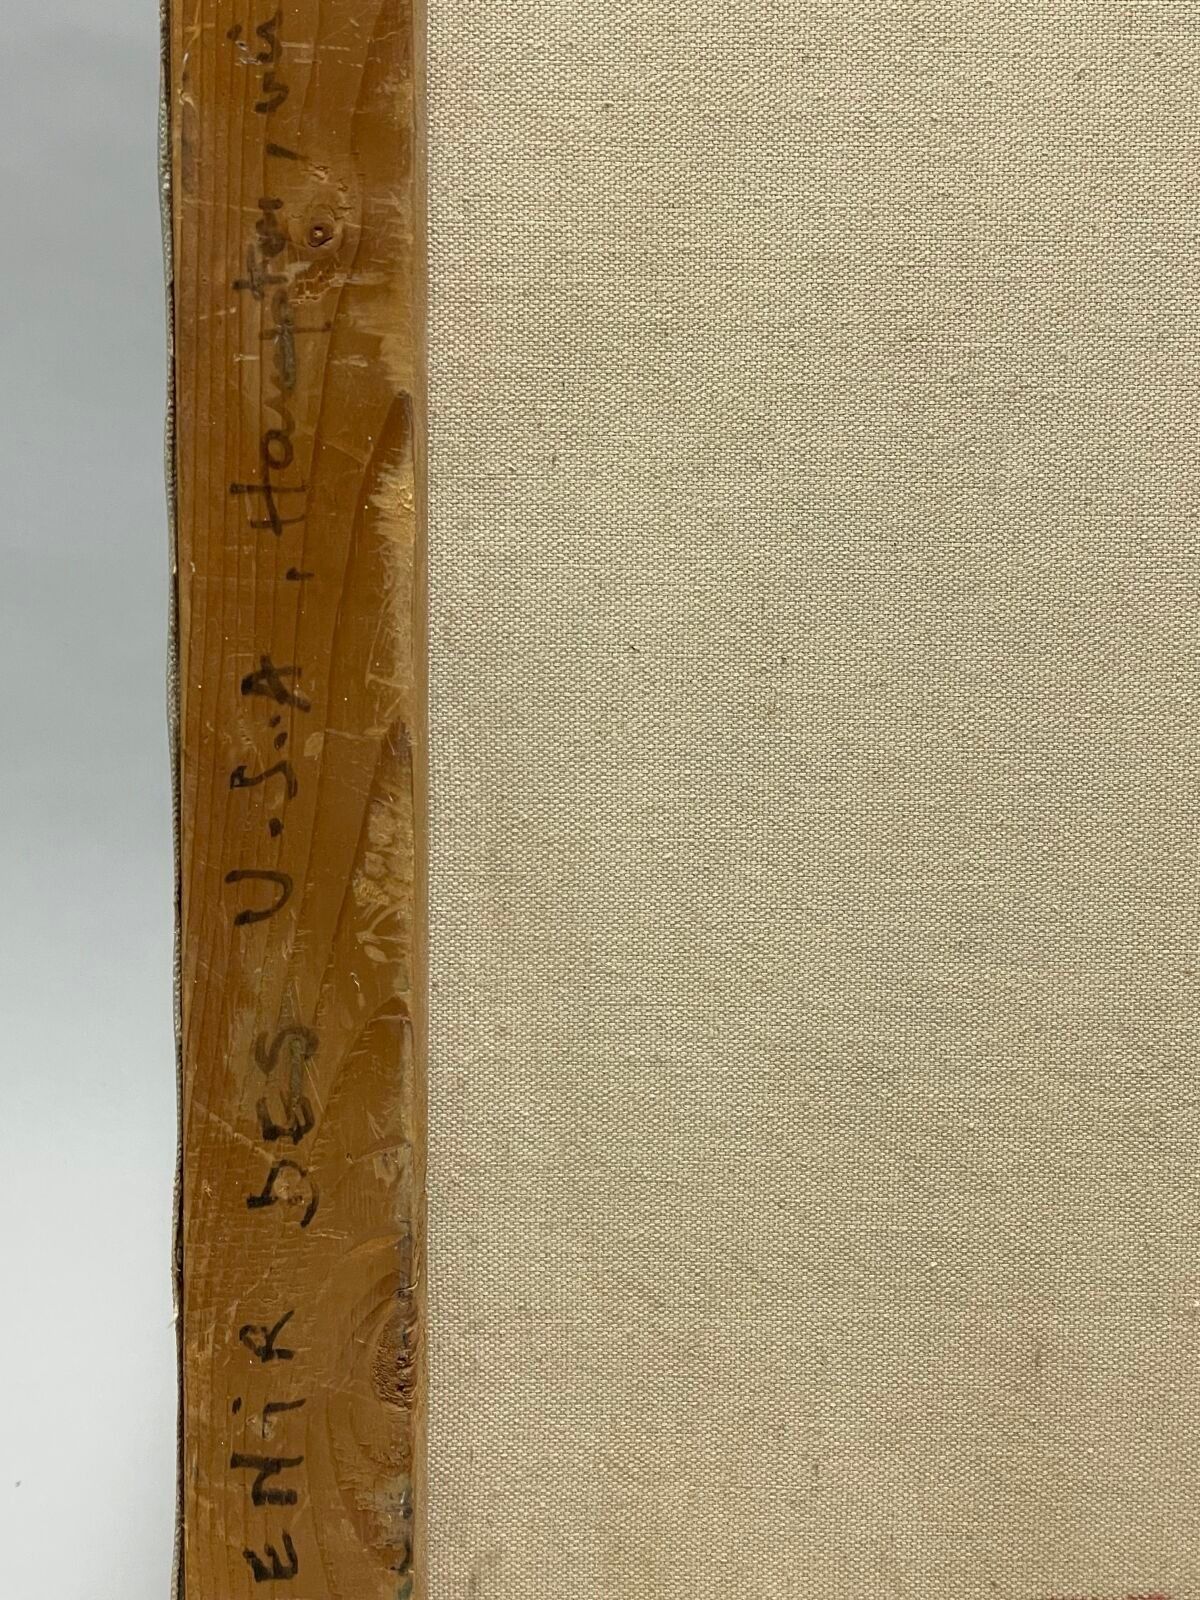 ENIR DES U.S.A, Hampton, vi